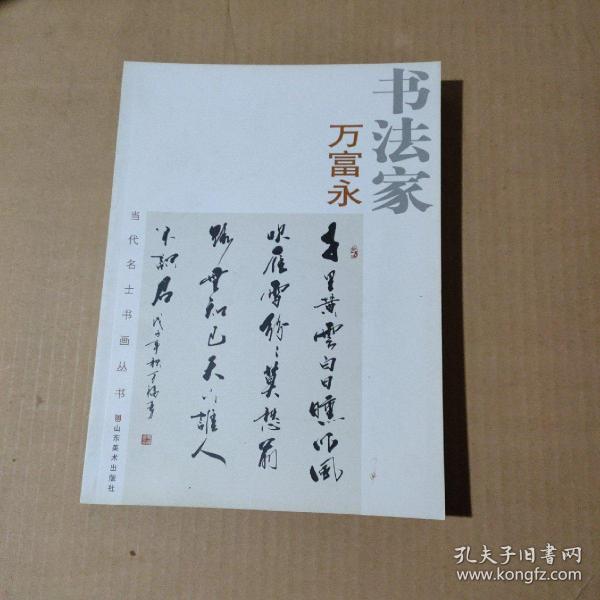 书法家
万富永
千里黄雲白日曛北風
吹雁雪紛〻莫愁前
路無知己天下誰人
不識君
戊子年秋万福寿
当代名士书画丛书
山东美术出版社
孔夫子旧书网
www.kongfz.com